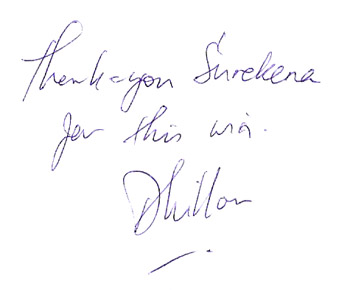 Thank-you Surekena
for this win.
Dhillon